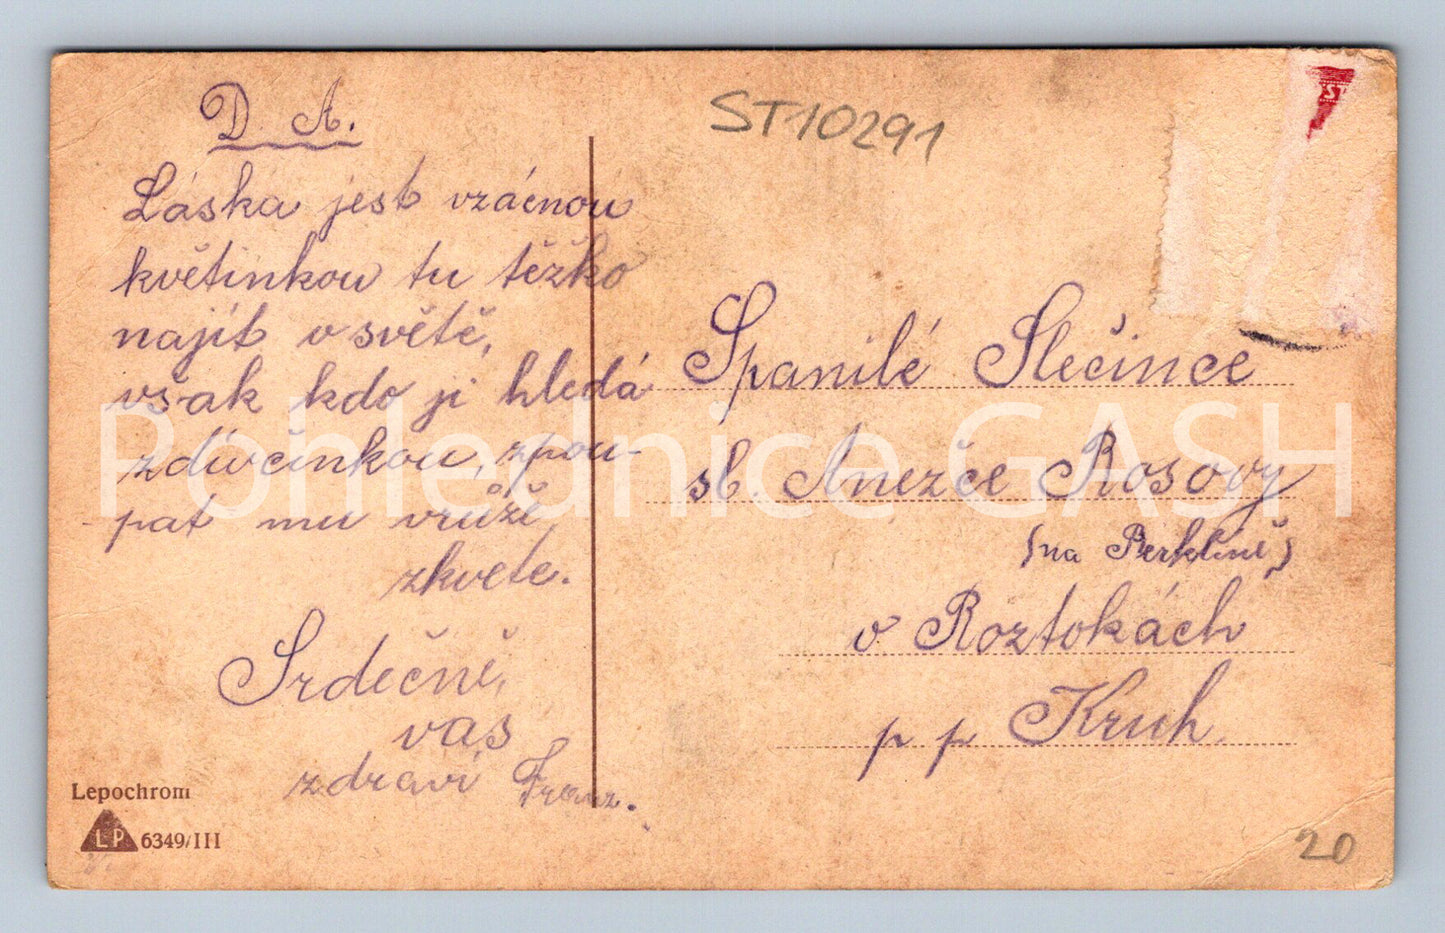 D. A.
Láska jest vzácnou
květinkou tu těžko
najít v světě,
však kdo ji hledá
z dívčinkou, zpou-
pat mu vrůžě
zkvete.
Srdečně,
vas
zdraví Franz.
Lepochrom
LP 6349/III
ST10291
Spanilé Slečince
sl. Anežče Rosovy
(na Perklině)
v Roztokách
p p Kruh.
20
Pohlednice GASH